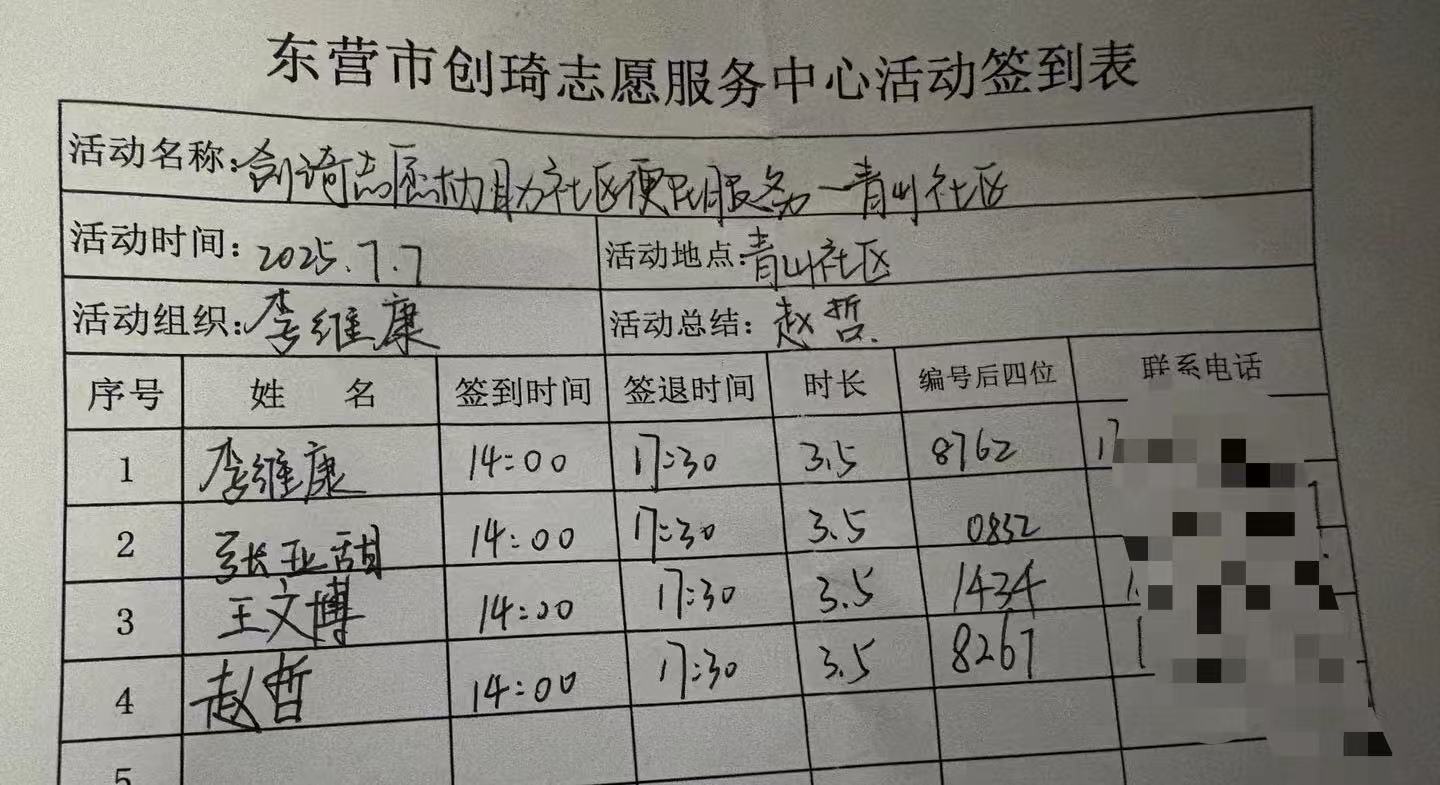 东营市创琦志愿服务中心活动签到表
活动名称:创琦志愿协助社区便民服务—青山社区
活动时间:2025.7.7 活动地点:青山社区
活动组织:李维康 活动总结:赵哲.
序号 姓 名 签到时间 签退时间 时长 编号后四位 联系电话
1 李维康 14:00 17:30 3.5 8762 17
2 张亚甜 14:00 17:30 3.5 0832
3 王文博 14:00 17:30 3.5 1434 1
4 赵哲 14:00 17:30 3.5 8267 1
5